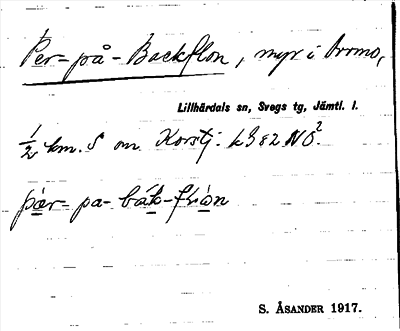 Per-på-Backflon, myr i Övmo,
Lillhärdals sn, Svegs tg, Jämtl. l.
½ km. S om Korstj. L 382 NO².
pær- pa- båk-
S. ÅSANDER 1917.